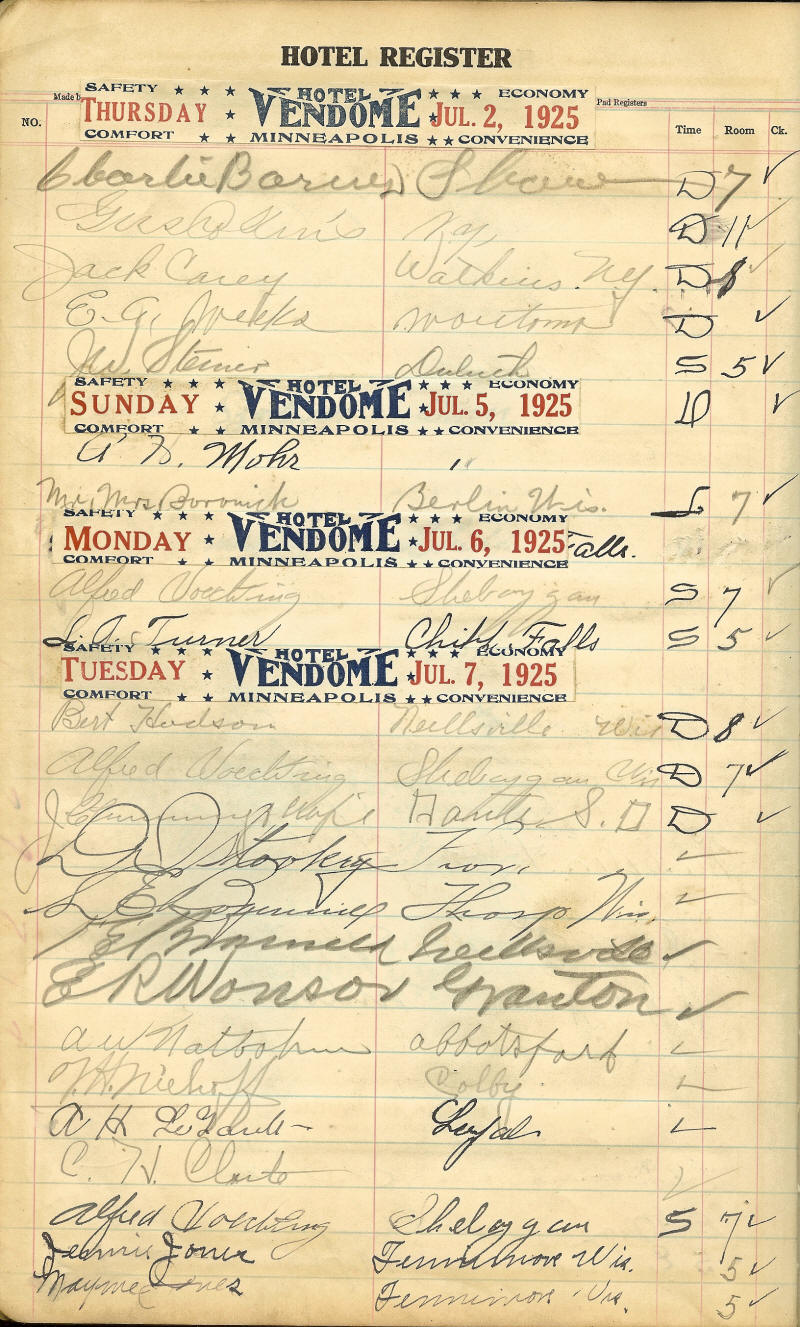 HOTEL REGISTER
SAFETY HOTEL ECONOMY
Made b THURSDAY VENDOME JUL. 2, 1925 Pad Registers
NO. COMFORT MINNEAPOLIS CONVENIENCE Time Room Ck.
Charlie Barnes D 7 ✓
N.Y. D 11
Jack Carey Watkins. N.Y. D 8 ✓
E. G. Weeks Wautoma D ✓
Steiner Duluth S 5 ✓
SAFETY HOTEL ECONOMY
SUNDAY VENDOME JUL. 5, 1925 D ✓
COMFORT MINNEAPOLIS CONVENIENCE
Mohr "
Mr. Mrs. Berlin Wis. 7 ✓
SAFETY HOTEL ECONOMY
MONDAY VENDOME JUL. 6, 1925 Falls.
COMFORT MINNEAPOLIS CONVENIENCE
Alfred Voechting Sheboygan S 7 ✓
L. A. Turner Chip Falls S 5 ✓
SAFETY HOTEL ECONOMY
TUESDAY VENDOME JUL. 7, 1925
COMFORT MINNEAPOLIS CONVENIENCE
Bert Hudson Neillsville Wis D 8 ✓
Alfred Voechting Sheboygan Wis D 7 ✓
& Wife S. D D ✓
Stookey ✓
Thorp Wis. ✓
Neillsville ✓
Granton ✓
A W abbotsford ✓
Niehoff Colby ✓
A H Loyal ✓
C. H. ✓
Alfred Voechting Sheboygan S 7 ✓
Jennie Jones Fennimore Wis. 5 ✓
Mayme Jones Fennimore Wis. 5 ✓